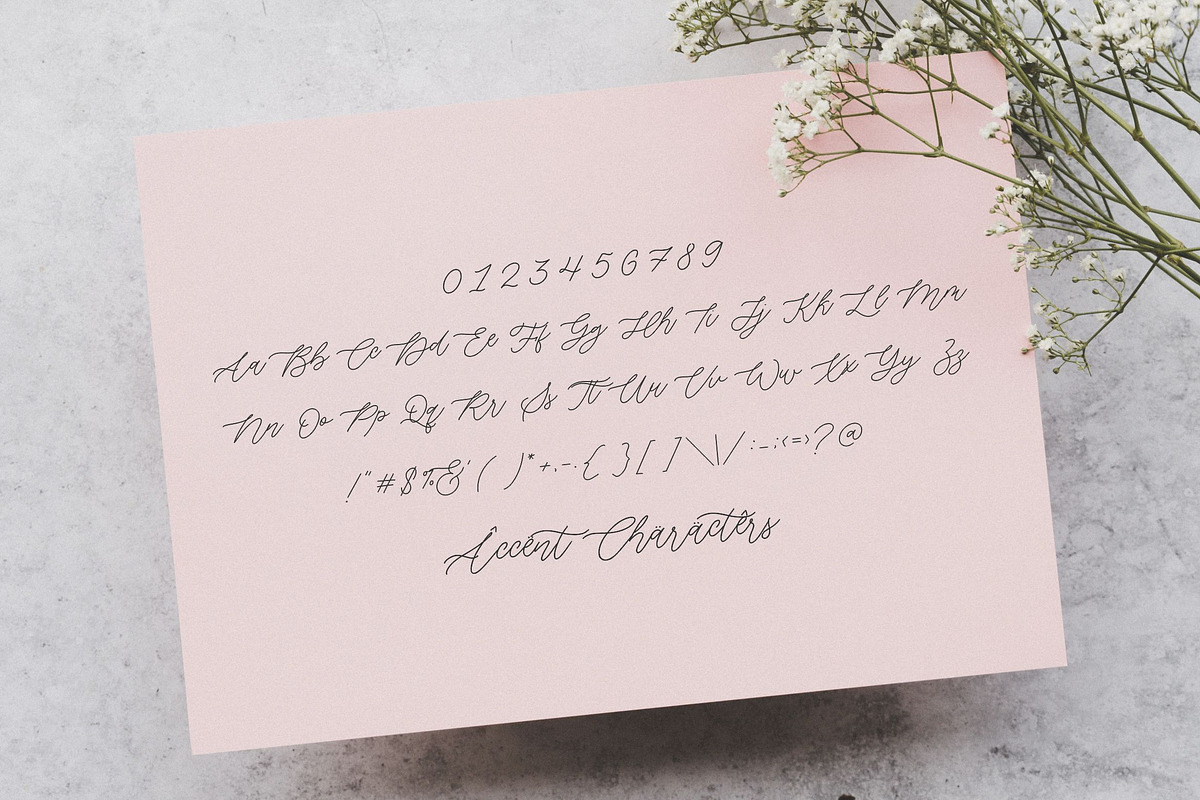 0123456789
Aa Bb Cc Dd Ee Ff Gg Hh Ii Jj Kk Ll Mm
Nn Oo Pp Qq Rr Ss Tt Uu Vv Ww Xx Yy Zz
!"#$%&'( )*+,-.{ }[ ]\|/:_;<=>?@
Âccént Chäräctêrs